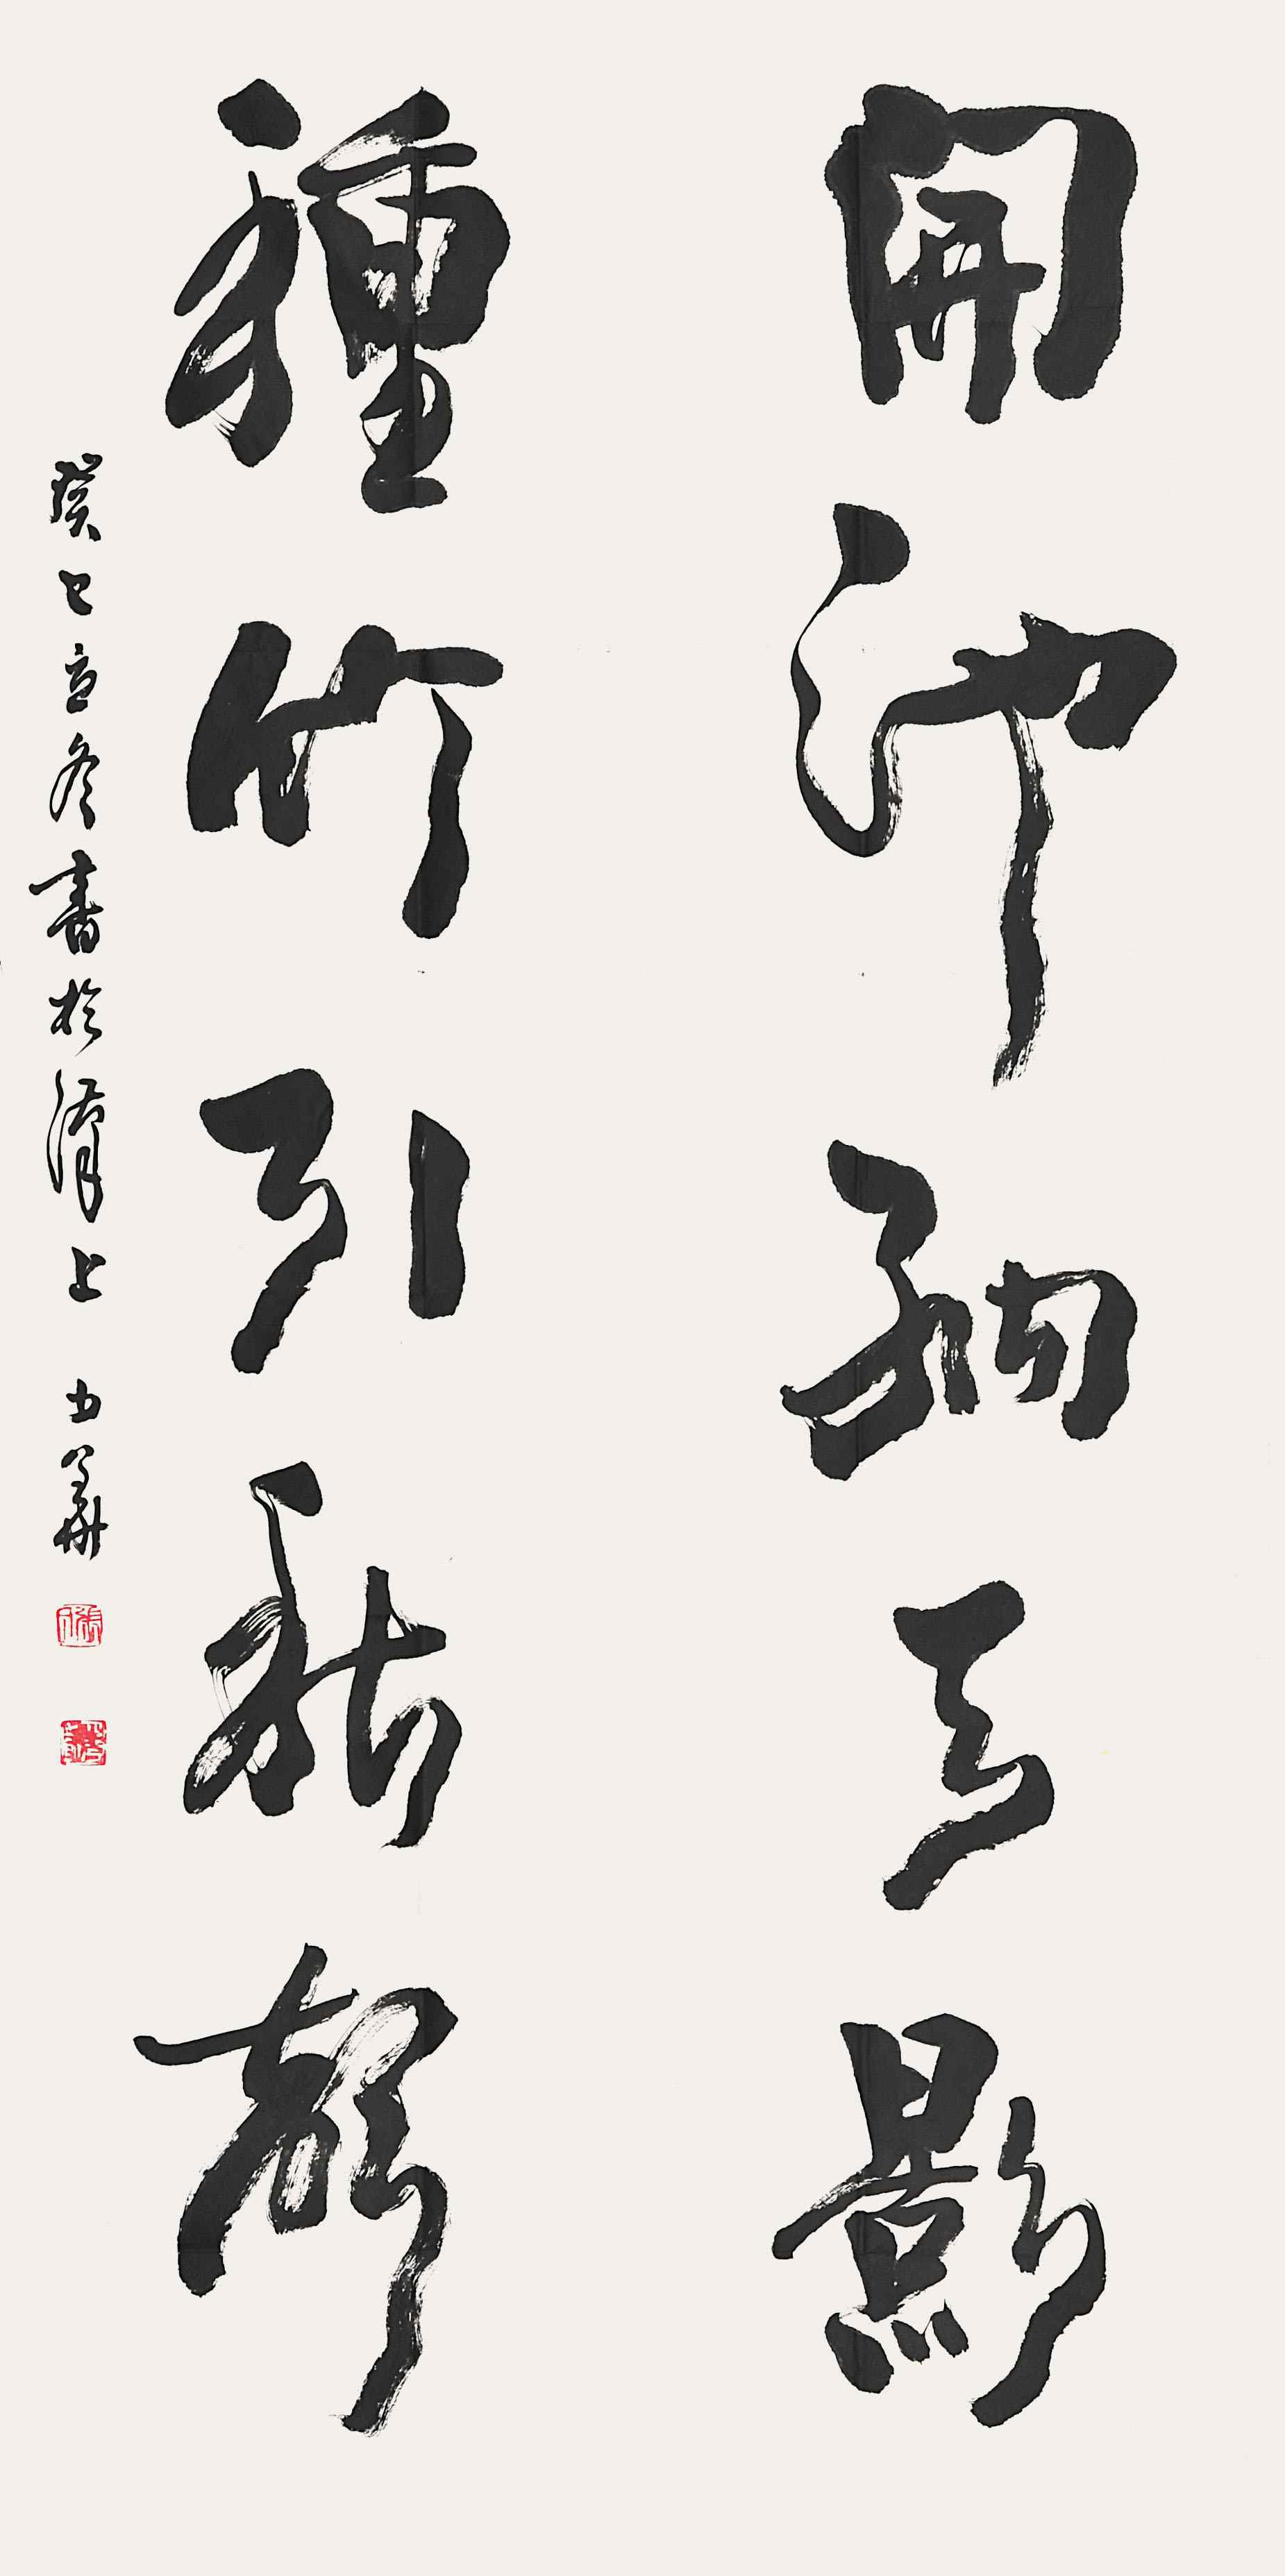 開池納天影
種竹引秋聲
癸巳立冬書於漢上 力華